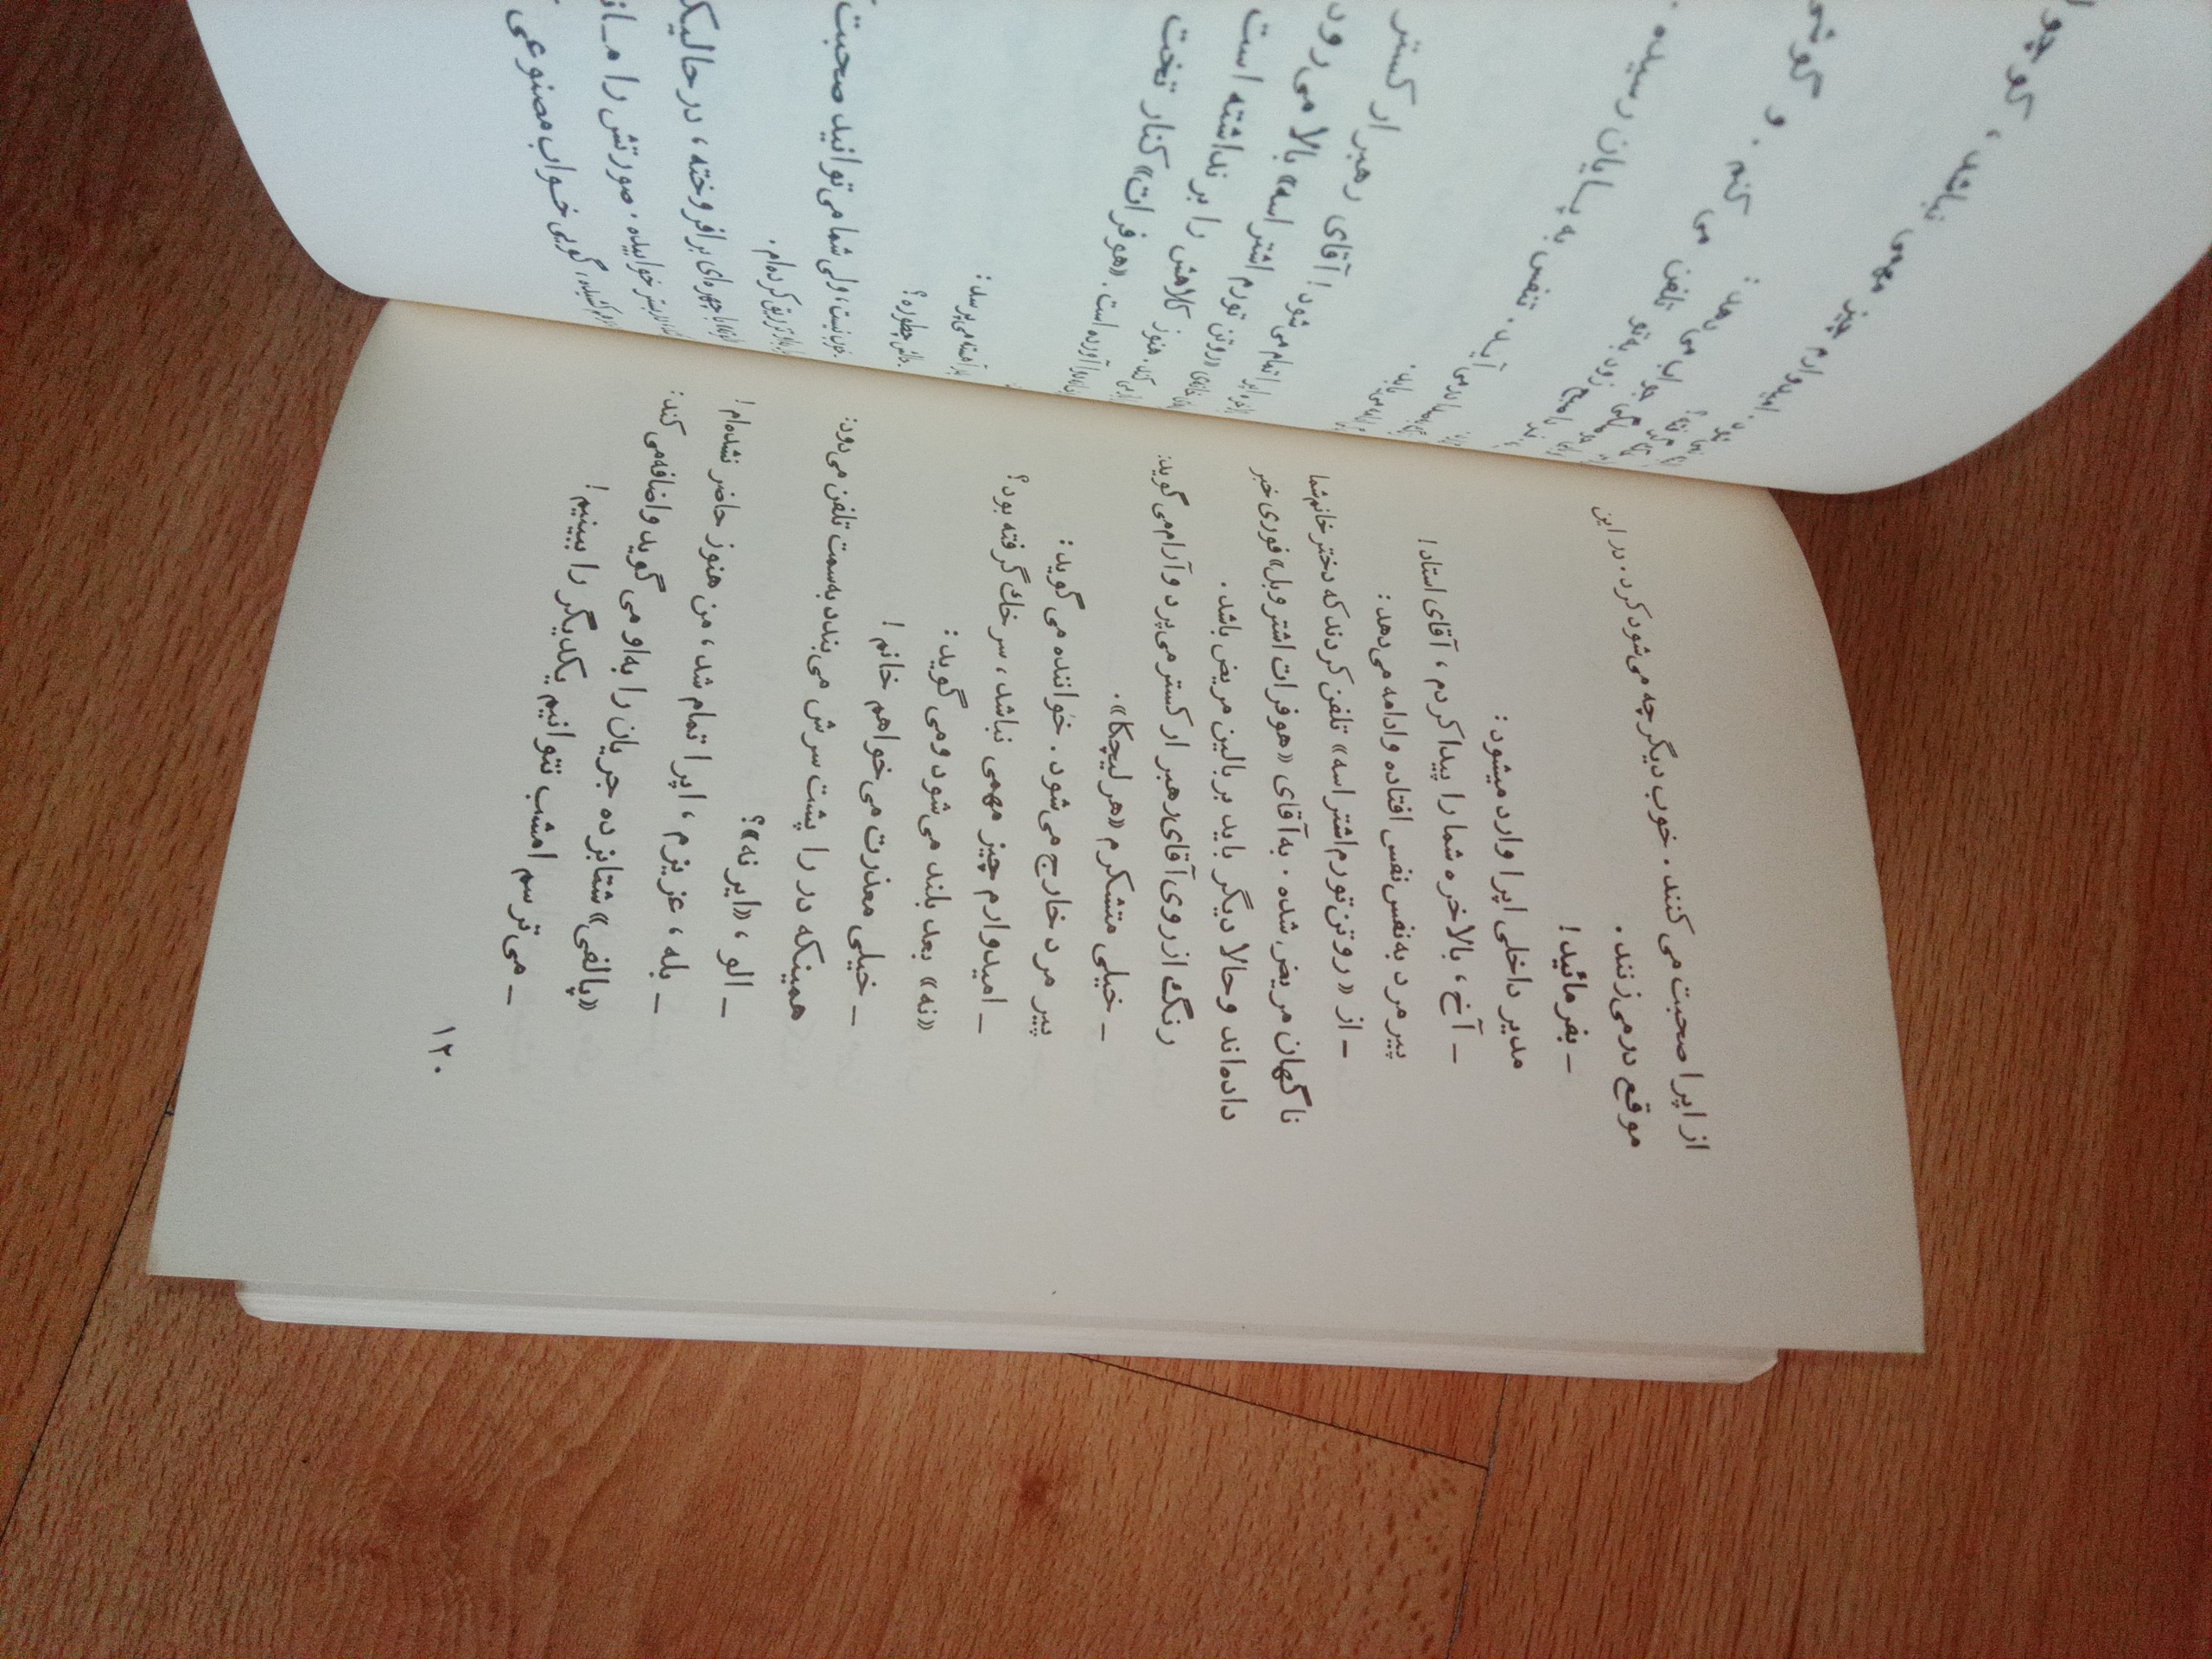 از اپرا صحبت می کنند. خوب دیگر چه می‌شود کرد. در این
موقع در می‌زنند.
ـ بفرمائید!
مدیر داخلی اپرا وارد میشود:
ـ آخ، بالاخره شما را پیدا کردم، آقای استاد!
پیر مرد به نفس نفس افتاده و ادامه می‌دهد:
ـ از «روتن تورم اشتراسه» تلفن کردند که دختر خانم شما
ناگهان مریض شده. به آقای «هوفرات اشتروبل» فوری خبر
داده‌اند و حالا دیگر باید بر بالین مریض باشد.
رنگ از روی آقای رهبر ارکستر می‌پرد و آرام می گوید:
ـ خیلی متشکرم «هر لیچکا».
پیر مرد خارج می‌شود. خواننده می گوید:
ـ امیدوارم چیز مهمی نباشد، سرخك گرفته بود؟
«نه» بعد بلند می‌شود و می گوید:
ـ خیلی معذرت می‌خواهم خانم!
همینکه در را پشت سرش می‌بندد به‌سمت تلفن می‌دود:
ـ الو، «ایرنه»؟
ـ بله، عزیزم، اپرا تمام شد، من هنوز حاضر نشده‌ام!
«پالفی» شتابزده جریان را به او می گوید و اضافه می کند:
ـ می‌ترسم امشب نتوانیم یکدیگر را ببینیم!
۱۲۰
امیدوارم چیز مهمی نباشد، کوچو
جواب می دهد:
تلفن می کنم. و گوشی
تنفس به پـایان رسیده.
رهبر ارکستر
تمام می‌شود! آقای
تورم اشتراسه» بالا می‌رود
هنوز کلاهش را بر نداشته است
آورده است. «هوفرات» کنار تخت
آهسته می‌پرسد:
چطوره؟
نیست، ولی شما می‌توانید صحبت
تزریق کرده‌ام.
با چهره‌ای برافروخته، در حالیک
خوابیده. صورتش را
گویی خـواب مصنوعی